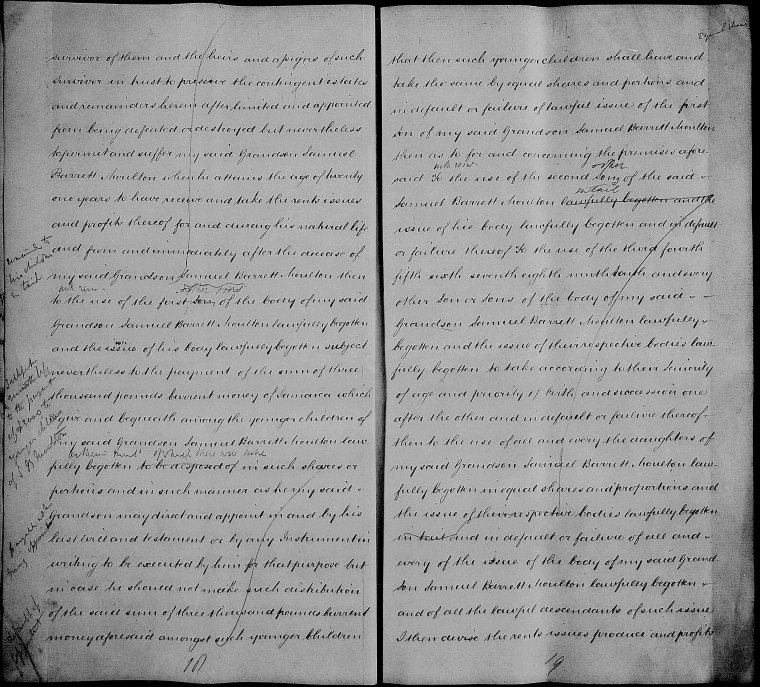 survivor of them and the heirs and assigns of such
survivor in trust to preserve the contingent estates
and remainders herein after limited and appointed
from being defeated or destroyed but nevertheless
to permit and suffer my said Grandson Samuel
Barrett Moulton when he attains the age of twenty
one years to have receive and take the rents issues
and profits thereof for and during his natural life
and from and immediately after the decease of
my said Grandson Samuel Barrett Moulton then
to the use of the first Son of the body of my said
Grandson Samuel Barrett Moulton lawfully begotten
and the issue of his body lawfully begotten subject
nevertheless to the payment of the sum of three
thousand pounds current money of Jamaica which
I give and bequeath among the younger children of
my said Grandson Samuel Barrett Moulton law-
of which there are none
fully begotten to be disposed of in such shares or
portions and in such manner as he my said
Grandson may direct and appoint in and by his
last will and testament or by any Instrument in
writing to be executed by him for that purpose but
in case he should not make such distribution
of the said sum of three thousand pounds current
money aforesaid amongst such younger Children
18
remainder to
children
in tail
to the payment
younger children
of S B Moulton
Equal shares
that then such younger children shall have and
take the same by equal shares and portions and
in default or failure of lawful issue of the first
Son of my said Grandson Samuel Barrett Moulton
then as to for and concerning the premises afore-
said To the use of the second Son of the said
in tail
Samuel Barrett Moulton lawfully begotten and the
issue of his body lawfully begotten and in default
or failure thereof To the use of the third fourth
fifth sixth seventh eighth ninth tenth and every
other Son or Sons of the body of my said
Grandson Samuel Barrett Moulton lawfully
begotten and the issue of their respective bodies law-
fully begotten to take according to their Seniority
of age and priority of birth and succession one
after the other and in default or failure thereof
then to the use of all and every the daughters of
my said Grandson Samuel Barrett Moulton law-
fully begotten in equal shares and proportions and
the issue of their respective bodies lawfully begotten
in tail and in default or failure of all and
every of the issue of the body of my said Grand-
Son Samuel Barrett Moulton lawfully begotten
and of all the lawful descendants of such issue
I then devise the rents issues produce and profits
19